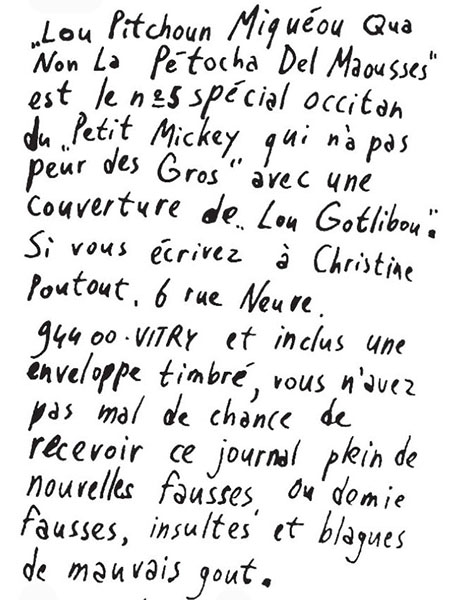 „Lou Pitchoun Miquéou Qua
Non La Pétocha Del Maousses"
est le n°5 spécial occitan
du „Petit Mickey qui n'a pas
peur des Gros" avec une
couverture de „Lou Gotlibou".
Si vous écrivez à Christine
Poutout, 6 rue Neuve.
94400-VITRY et inclus une
enveloppe timbré, vous n'avez
pas mal de chance de
recevoir ce journal plein de
nouvelles fausses, ou demie
fausses, insultes et blagues
de mauvais gout.